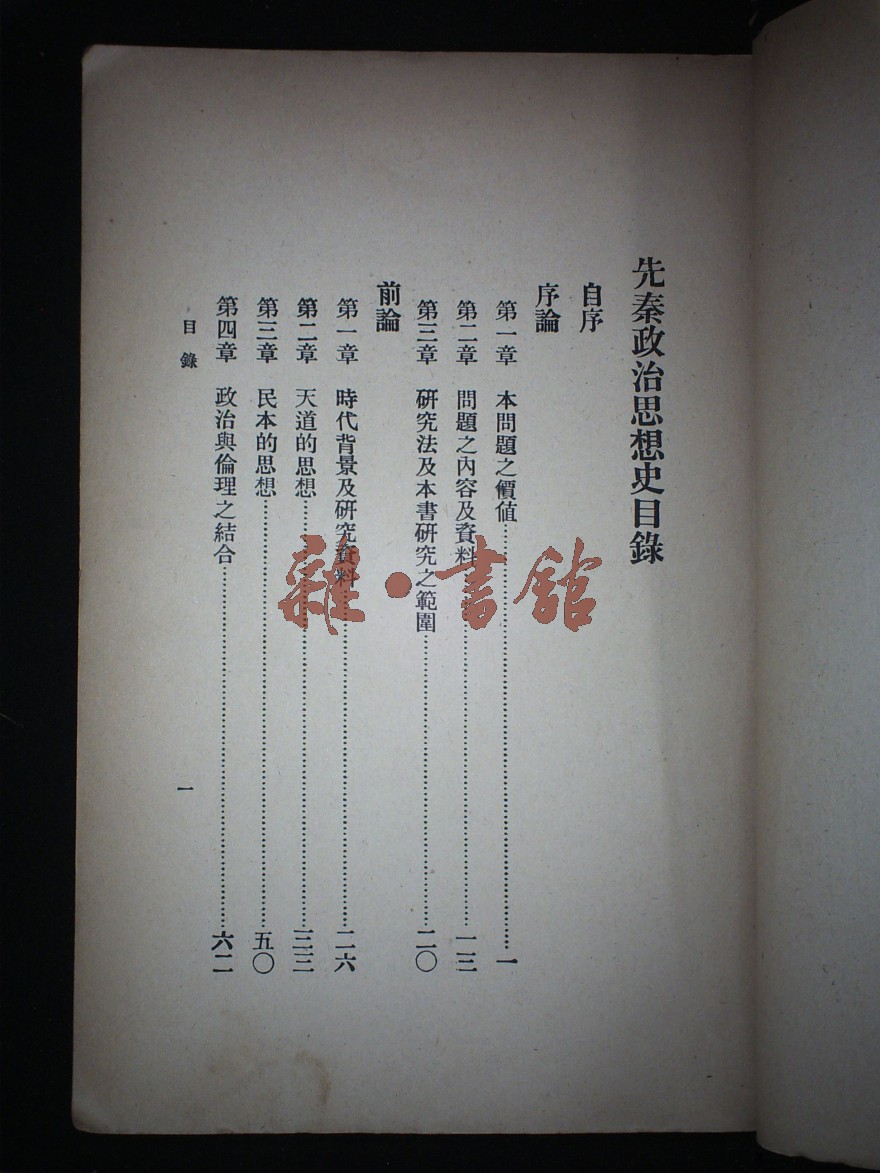 先秦政治思想史目錄
自序
序論
第一章　本問題之價值…………一
第二章　問題之內容及資料…………一三
第三章　研究法及本書研究之範圍…………二〇
前論
第一章　時代背景及研究資料…………二六
第二章　天道的思想…………三三
第三章　民本的思想…………五〇
第四章　政治與倫理之結合…………六二
目錄　一
雜·書館